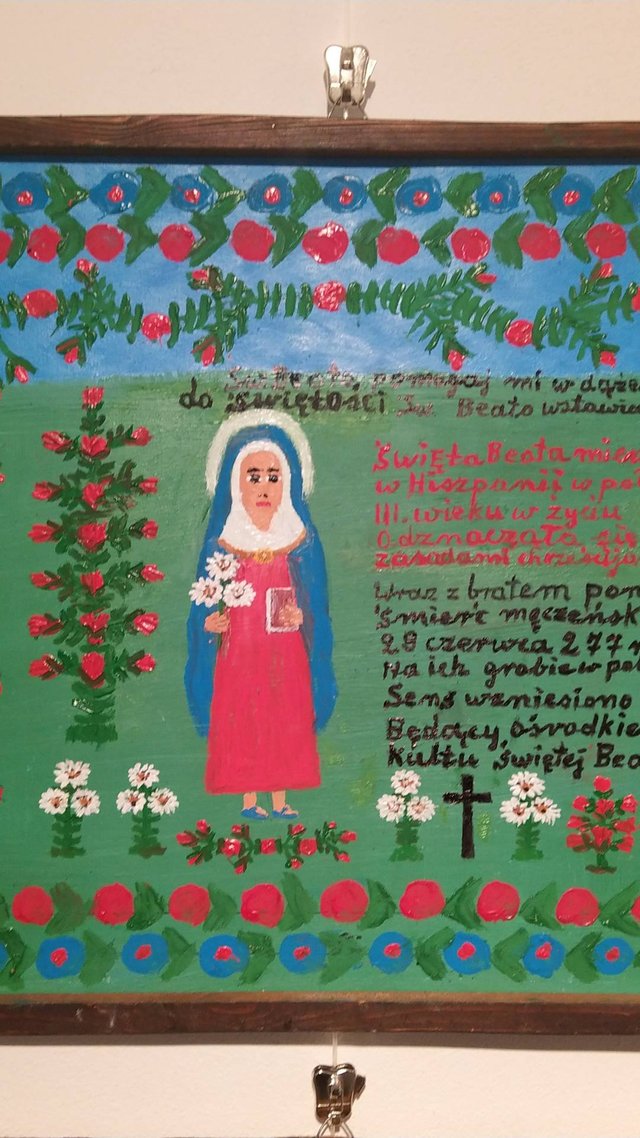 Św. Beato, pomagaj mi w dąże
do świętości Św. Beato wstawia
Święta Beata mies
w Hiszpanij w po
III. wieku w życiu
Odznaczała się
zasadami chrześcija
Wraz z bratem pon
śmierć męczeńsk
28 czerwca 277 r
Na ich grobie w po
Sens wzniesiono
Będący ośrodkie
Kultu świętej Bea